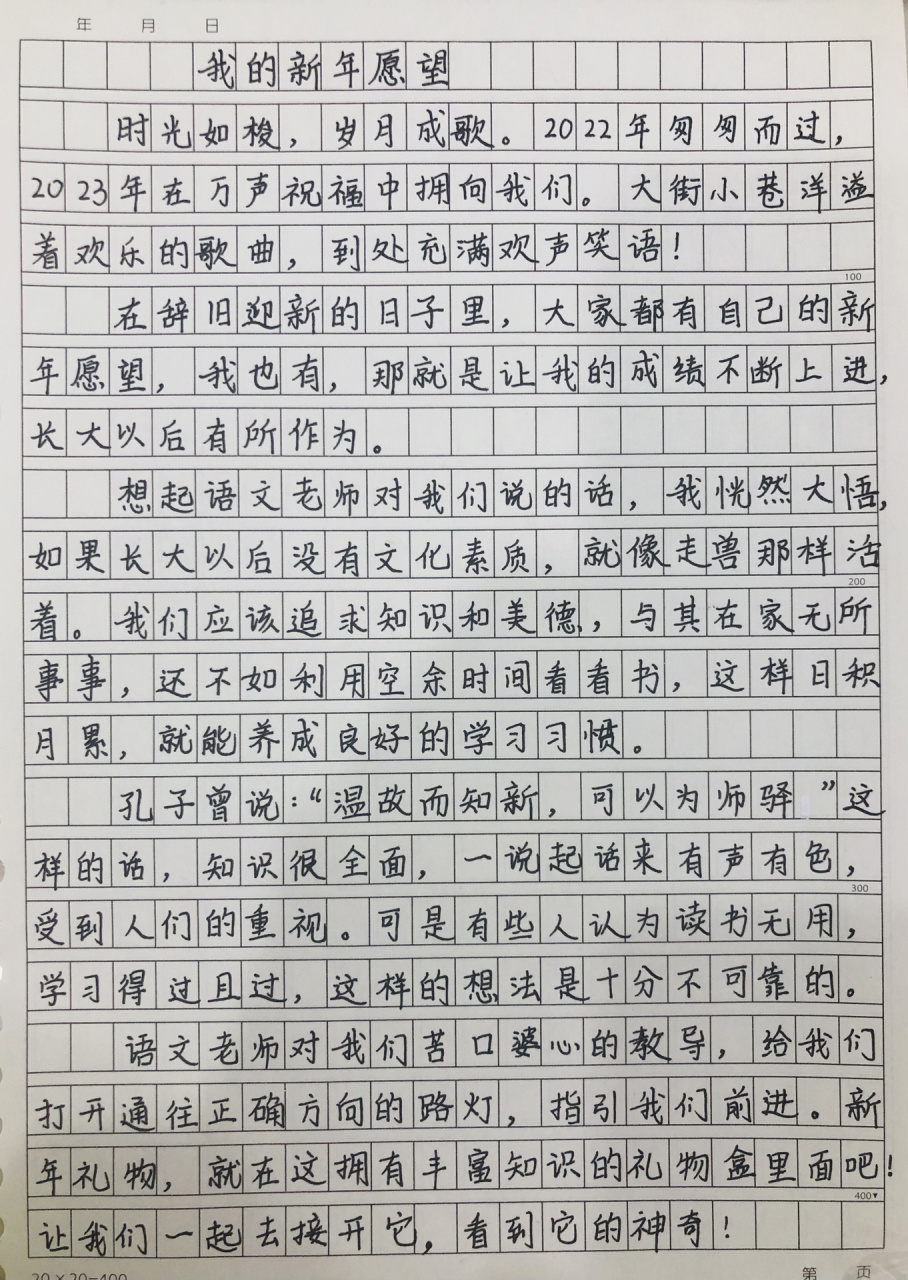 年 月 日
我的新年愿望
时光如梭，岁月成歌。2022年匆匆而过，
2023年在万声祝福中拥向我们。大街小巷洋溢
着欢乐的歌曲，到处充满欢声笑语！
100
在辞旧迎新的日子里，大家都有自己的新
年愿望，我也有，那就是让我的成绩不断上进，
长大以后有所作为。
想起语文老师对我们说的话，我恍然大悟，
如果长大以后没有文化素质，就像走兽那样活
200
着。我们应该追求知识和美德，与其在家无所
事事，还不如利用空余时间看看书，这样日积
月累，就能养成良好的学习习惯。
孔子曾说：“温故而知新，可以为师驿”这
样的话，知识很全面，一说起话来有声有色，
300
受到人们的重视。可是有些人认为读书无用，
学习得过且过，这样的想法是十分不可靠的。
语文老师对我们苦口婆心的教导，给我们
打开通往正确方向的路灯，指引我们前进。新
年礼物，就在这拥有丰富知识的礼物盒里面吧！
400▼
让我们一起去接开它，看到它的神奇！
20×20=400 第 页